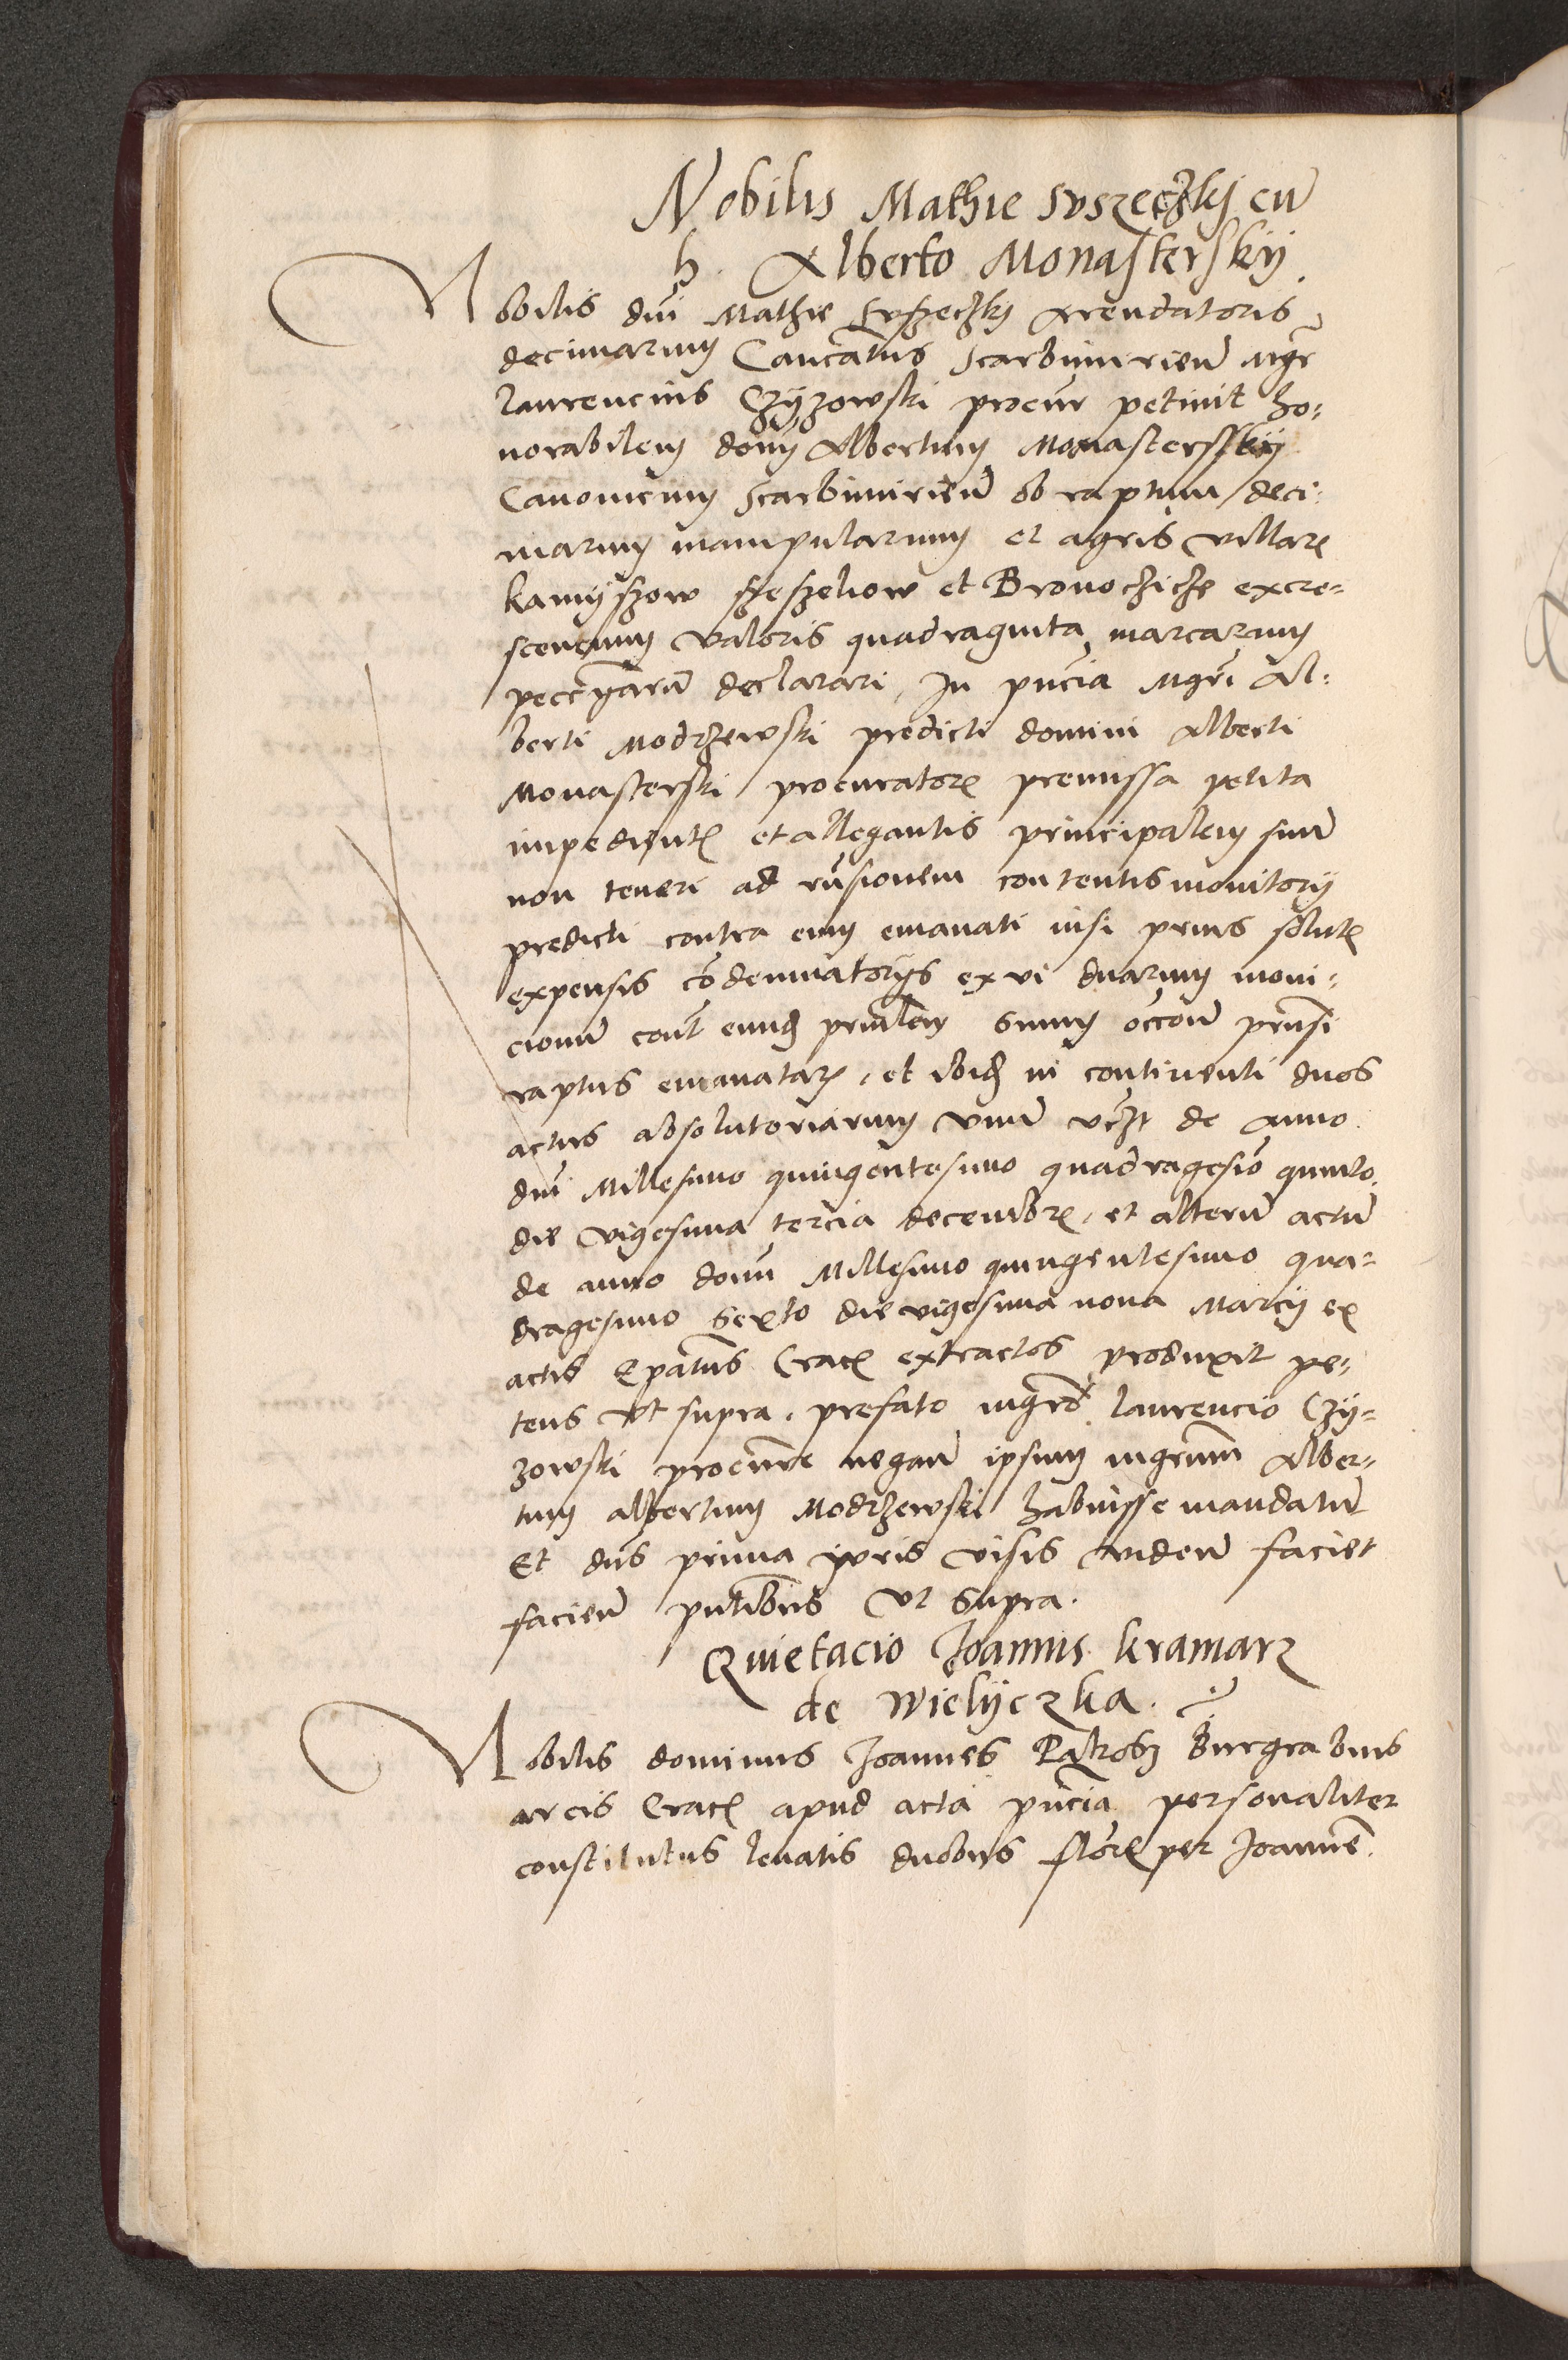 Nobilis Mathie Suszeczkj cu̅
h. Alberto Monasterskij
Nobilis dn̅i Mathie Suszeczkj Arendatoris
decimarum Cancatus Scarbimirien̅ mgr̅
Laurencius Czyzowski procur petiuit ho-
norabilem dom̅ Albertum Monastersskij
Canonicum Scarbimirien̅ ob raptum deci-
marum manipularum et agris villarꝭ
Kamyszow et Bronoczicze excre-
scencium valoris quadraginta marcarum
peccu̅iaru̅ declarari, In pn̅cia Mgri̅ Al-
berti Modrzewski predicti domini Alberti
Monasterski procuratorꝭ premissa petita
impedientꝭ et allegantis principalem suu̅
non teneri ad rn̅sionem contentis monitorij
predicti contra eum emanati nisi prius solutꝭ
expensis co̅demnatorijs ex vi duarum moni-
cionu̅ cont̅ eund̅ prin̅lem suum occ̅one pren̅si
raptus emanatarꝭ, et ibid̅ in continenti duos
actus absolutoriarum vnu̅ vczt de Anno
dn̅i Millesimo quingentesimo quadragesi̅o quinto
die vigesima tercia decembrꝭ, et alteru̅ actu̅
de anno dom̅ Millesimo quingentesimo qua-
dragesimo Sexto die vigesima nona Marcij ex
actis Ep̅atus Cracꝭ extractos produxit pe-
tens vt supra, prefato mgro̅ Laurencio Czy-
zowski procure negan̅ ipsum mgrum̅ Alber-
tum albertum Modrzewski habuisse mandatu̅
Et dn̅s prima iuris visis viden̅ faciet
facien̅ pn̅tibus vt supra.
Quietacio Joannis Kramarz
de Wielyczka.
Nobilis dominus Joannes Burgrabius
arcis Cracꝭ apud acta pn̅cia personaliter
constitutus leuatis duobus florꝭ per Joanne̅